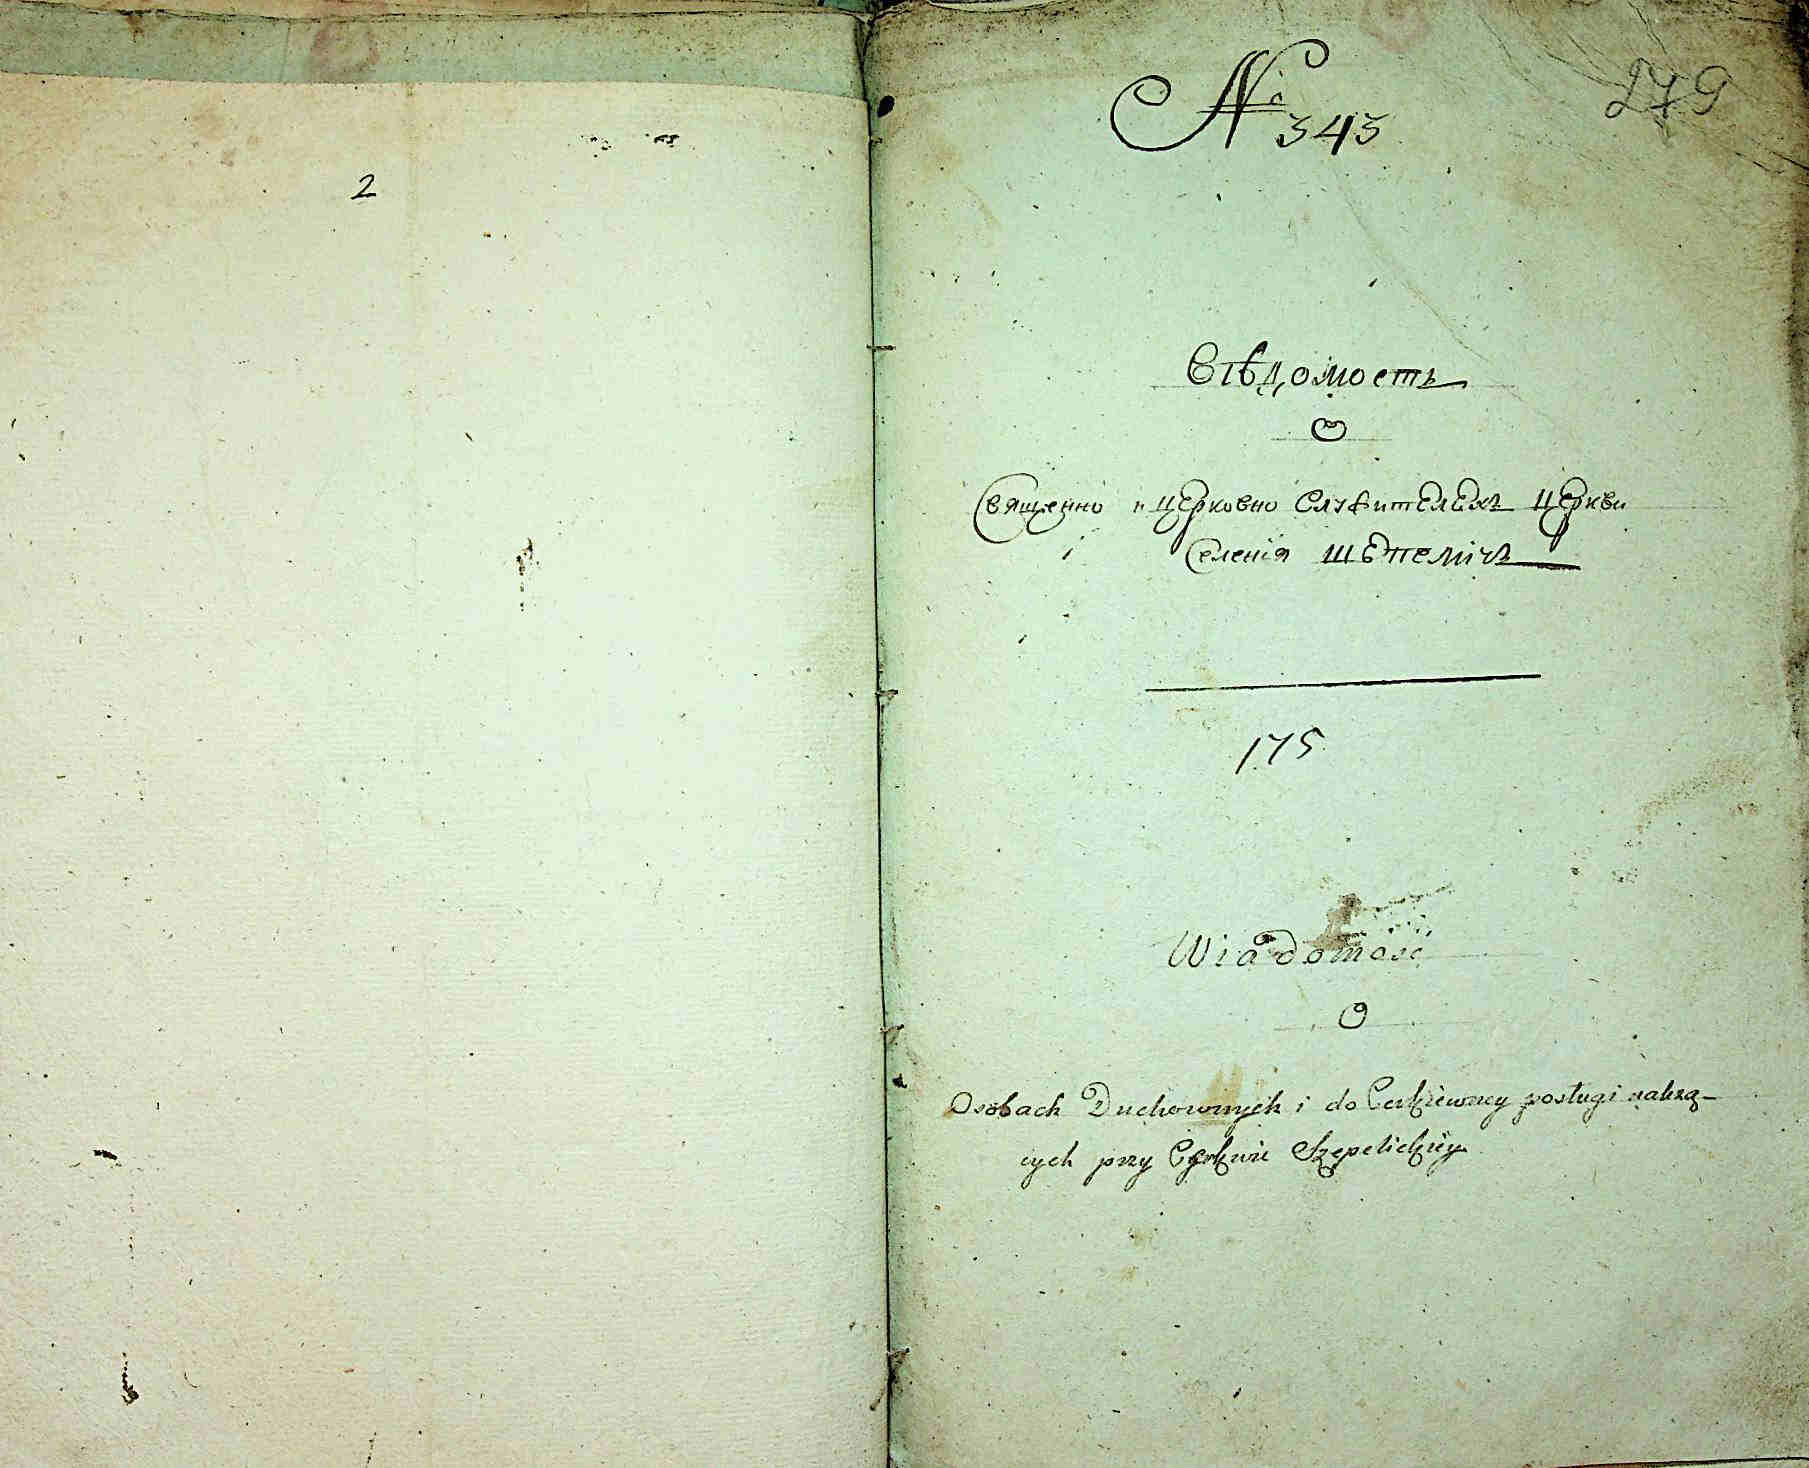 2
№ 343
279
Вѣдомость
О
Священно и церковно служителехъ церкви
Селенія Шѣпеличъ
175
Wiadomość
O
Osobach Duchownych i do Cerkiewney posługi należą-
cych przy Cerkwie Szepelickiey